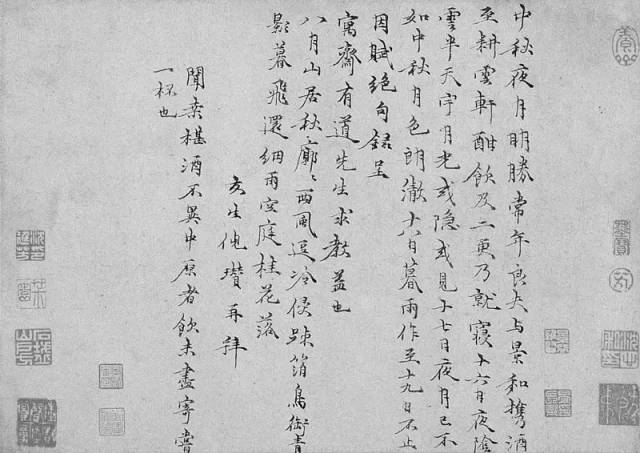 中秋夜月明勝常年良夫与景和携酒
至耕雲軒酣飲及二更乃就寢十六日夜陰
雲半天宇月光或隐或見十七日夜月已不
如中秋月色朗澈十八日暮雨作至十九日不止
因賦絶句録呈
寓齋有道先生求教益也
八月山居秋廓〻西風逗冷侵踈箔鳥銜青
影暮飛還細雨空庭桂花落
友生倪瓚再拜
聞桑椹酒不異中原者飲未盡寄嘗
一杯也